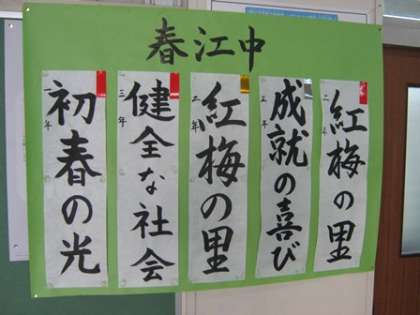 春江中
紅梅の里
二年
成就の喜び
三年
紅梅の里
二年
健全な社会
三年
初春の光
一年